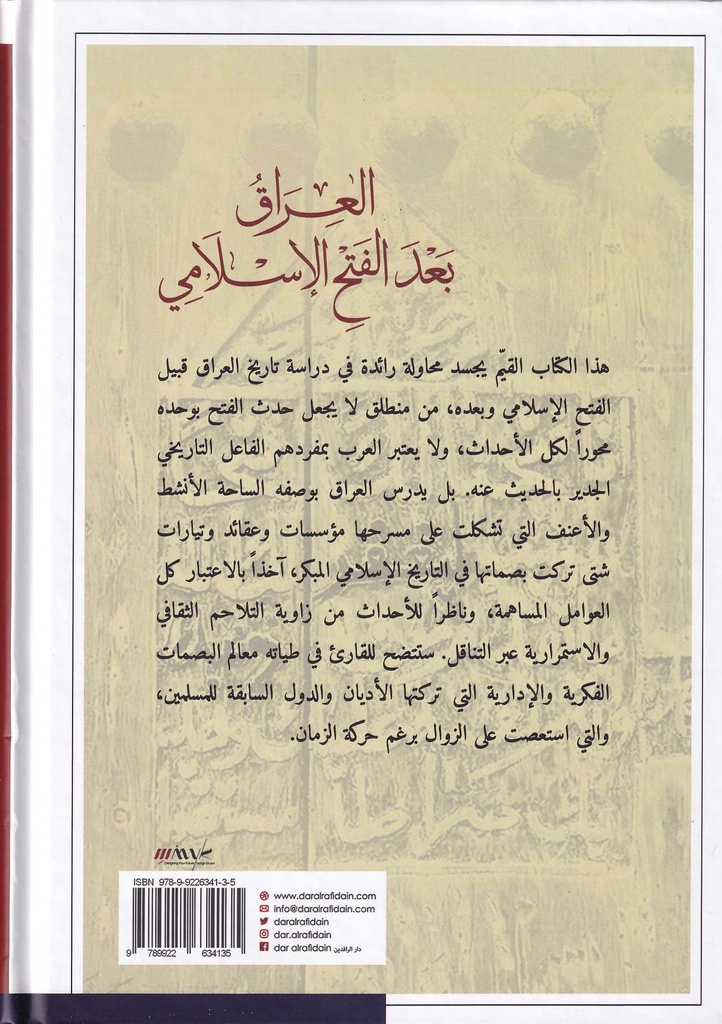 العِرَاقُ
بَعْدَ الفَتْحِ الإسْلَامِي
هذا الكتاب القيّم يجسد محاولة رائدة في دراسة تاريخ العراق قبيل
الفتح الإسلامي وبعده، من منطلق لا يجعل حدث الفتح بوحده
محوراً لكل الأحداث، ولا يعتبر العرب بمفردهم الفاعل التاريخي
الجدير بالحديث عنه. بل يدرس العراق بوصفه الساحة الأنشط
والأعنف التي تشكلت على مسرحها مؤسسات وعقائد وتيارات
شتى تركت بصماتها في التاريخ الإسلامي المبكر، آخذاً بالاعتبار كل
العوامل المساهمة، وناظراً للأحداث من زاوية التلاحم الثقافي
والاستمرارية عبر التناقل. ستتضح للقارئ في طياته معالم البصمات
الفكرية والإدارية التي تركتها الأديان والدول السابقة للمسلمين،
والتي استعصت على الزوال برغم حركة الزمان.
ISBN 978-9-9226341-3-5
9 789922 634135
www.daralrafidain.com
info@daralrafidain.com
daralrafidain
dar.alrafidain
dar alrafidain دار الرافدين